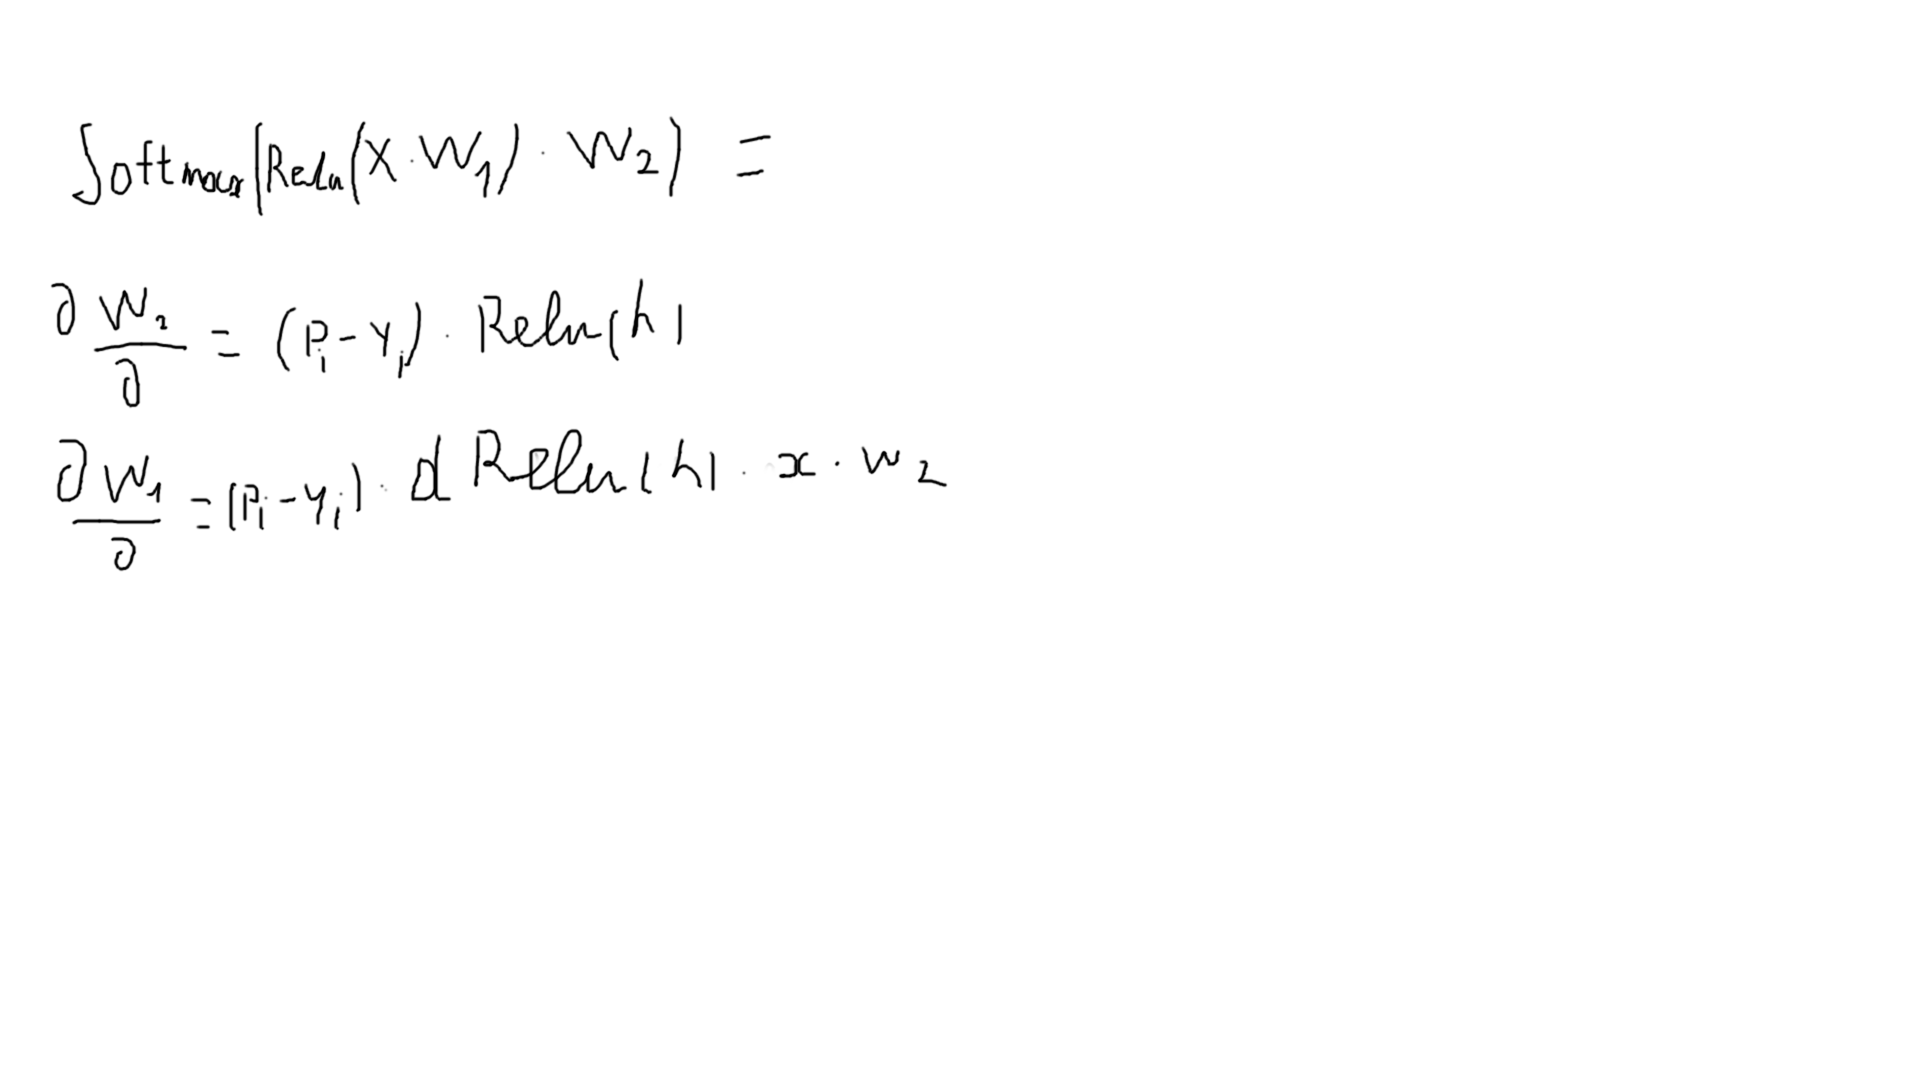 Softmax(Relu(X·W₁)·W₂) =
∂W₂/∂ = (Pᵢ-Yᵢ)·Relu(h)
∂W₁/∂ = (Pᵢ-Yᵢ)·d Relu(h)·x·w₂